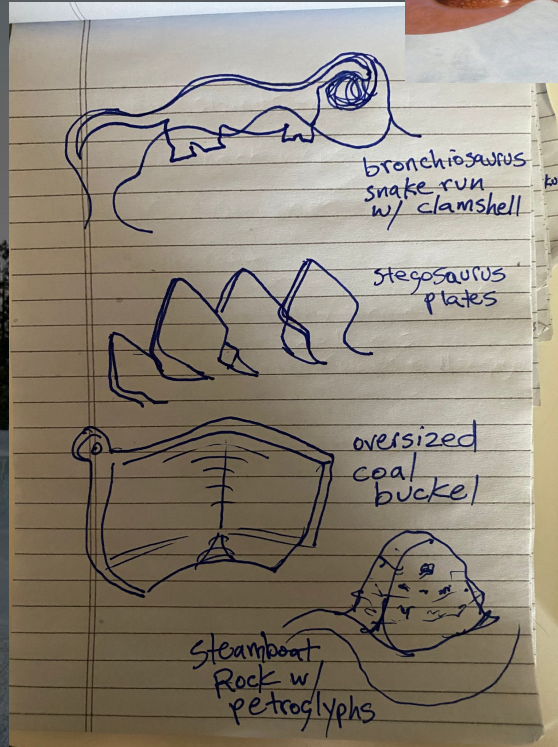 bronchiosaurus
snake run
w/ clamshell
stegosaurus
plates
oversized
coal
bucket
Steamboat
Rock w/
petroglyphs